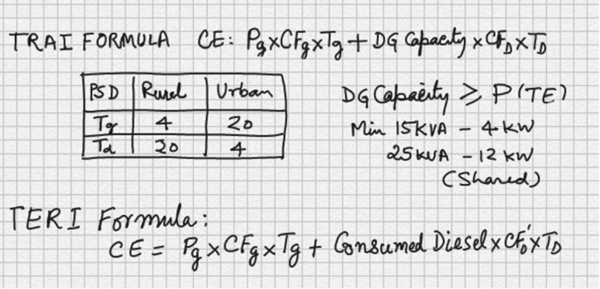 TRAI FORMULA CE: Pg×CFg×Tg + DG Capacity ×CFD×TD
PSD Rural Urban
Tg 4 20
Td 20 4
DG Capacity ≥ P(TE)
Min 15KVA - 4 KW
25KVA - 12 KW
(Shared)
TERI Formula:
CE = Pg×CFg×Tg + Consumed Diesel×CFD'×TD